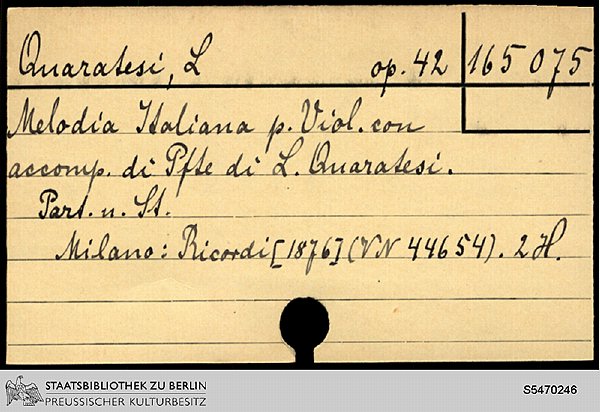 Quaratesi, L op. 42 165 075
Melodia Italiana p. Viol. con
accomp. di Pfte di L. Quaratesi.
Part. u. St.
Milano: Ricordi [1876] (VN 44654). 2 H.
STAATSBIBLIOTHEK ZU BERLIN
PREUSSISCHER KULTURBESITZ
S5470246